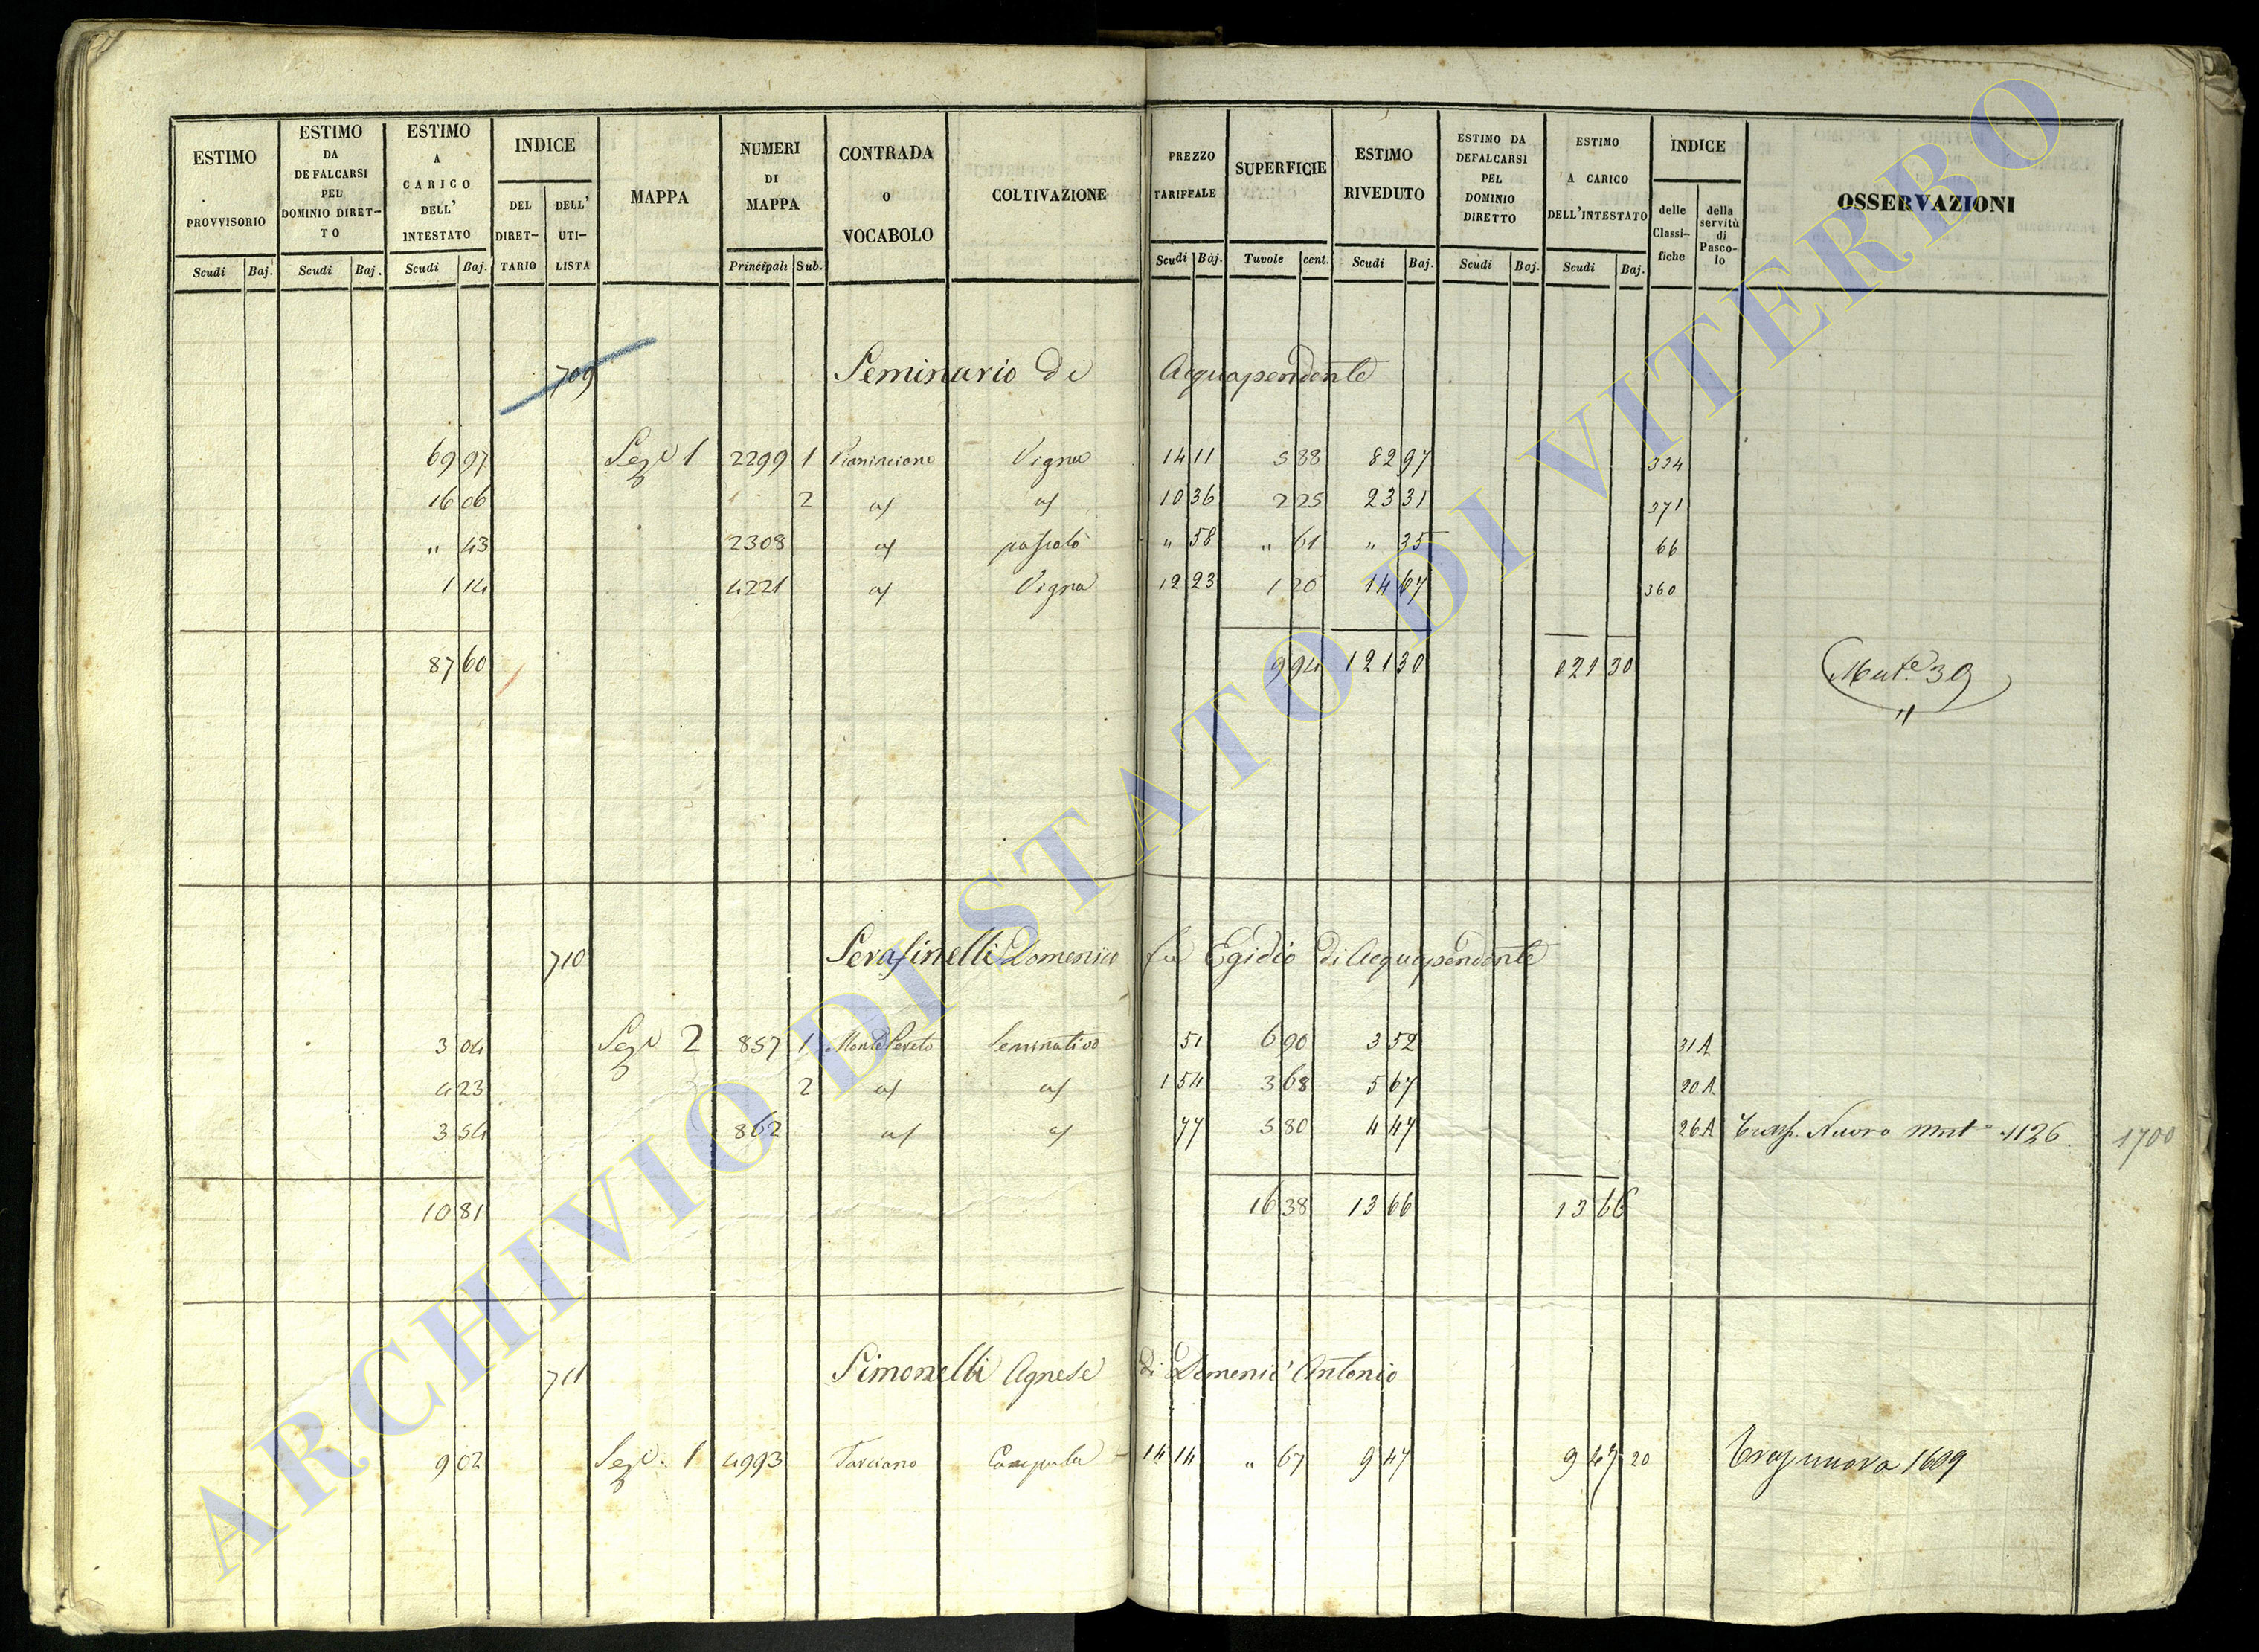 ESTIMO PROVVISORIO
ESTIMO DA DEFALCARSI PEL DOMINIO DIRET-TO
ESTIMO A CARICO DELL' INTESTATO
INDICE
DEL DIRET-TARIO
DELL' UTI-LISTA
MAPPA
NUMERI DI MAPPA
CONTRADA O VOCABOLO
COLTIVAZIONE
PREZZO TARIFFALE
SUPERFICIE
ESTIMO RIVEDUTO
ESTIMO DA DEFALCARSI PEL DOMINIO DIRETTO
ESTIMO A CARICO DELL'INTESTATO
INDICE
delle Classi-fiche
della servitù di Pasco-lo
OSSERVAZIONI
Scudi Baj. Scudi Baj. Scudi Baj. Principali Sub. Scudi Baj. Tavole cent. Scudi Baj. Scudi Baj. Scudi Baj.
709 Seminario di Acquapendente
69 97 Sez.e 1 2299 1 Vigna 14 11 5 88 82 97 334
16 06 2 a/ a/ 10 36 2 25 23 31 371
" 43 2308 a/ pascolo " 58 " 61 " 35 66
1 14 4221 a/ Vigna 12 23 1 20 14 67 360
87 60 9 94 121 30 121 30 Mut.e 39
"
710 Serafinelli Domenico fu Egidio di Acquapendente
3 04 Sez.e 2 857 1 Seminativo 51 6 90 3 52 31 A
4 23 2 a/ a/ 1 54 3 68 5 67 20 A
3 54 862 a/ a/ 77 5 80 4 47 26 A Trasp. Nuovo 1126 1700
10 81 16 38 13 66 13 66
711 Simonelli Agnese di Domenic' Antonio
9 02 Sez.e 1 4993 14 14 " 67 9 47 9 47 20 1609
ARCHIVIO DI STATO DI VITERBO